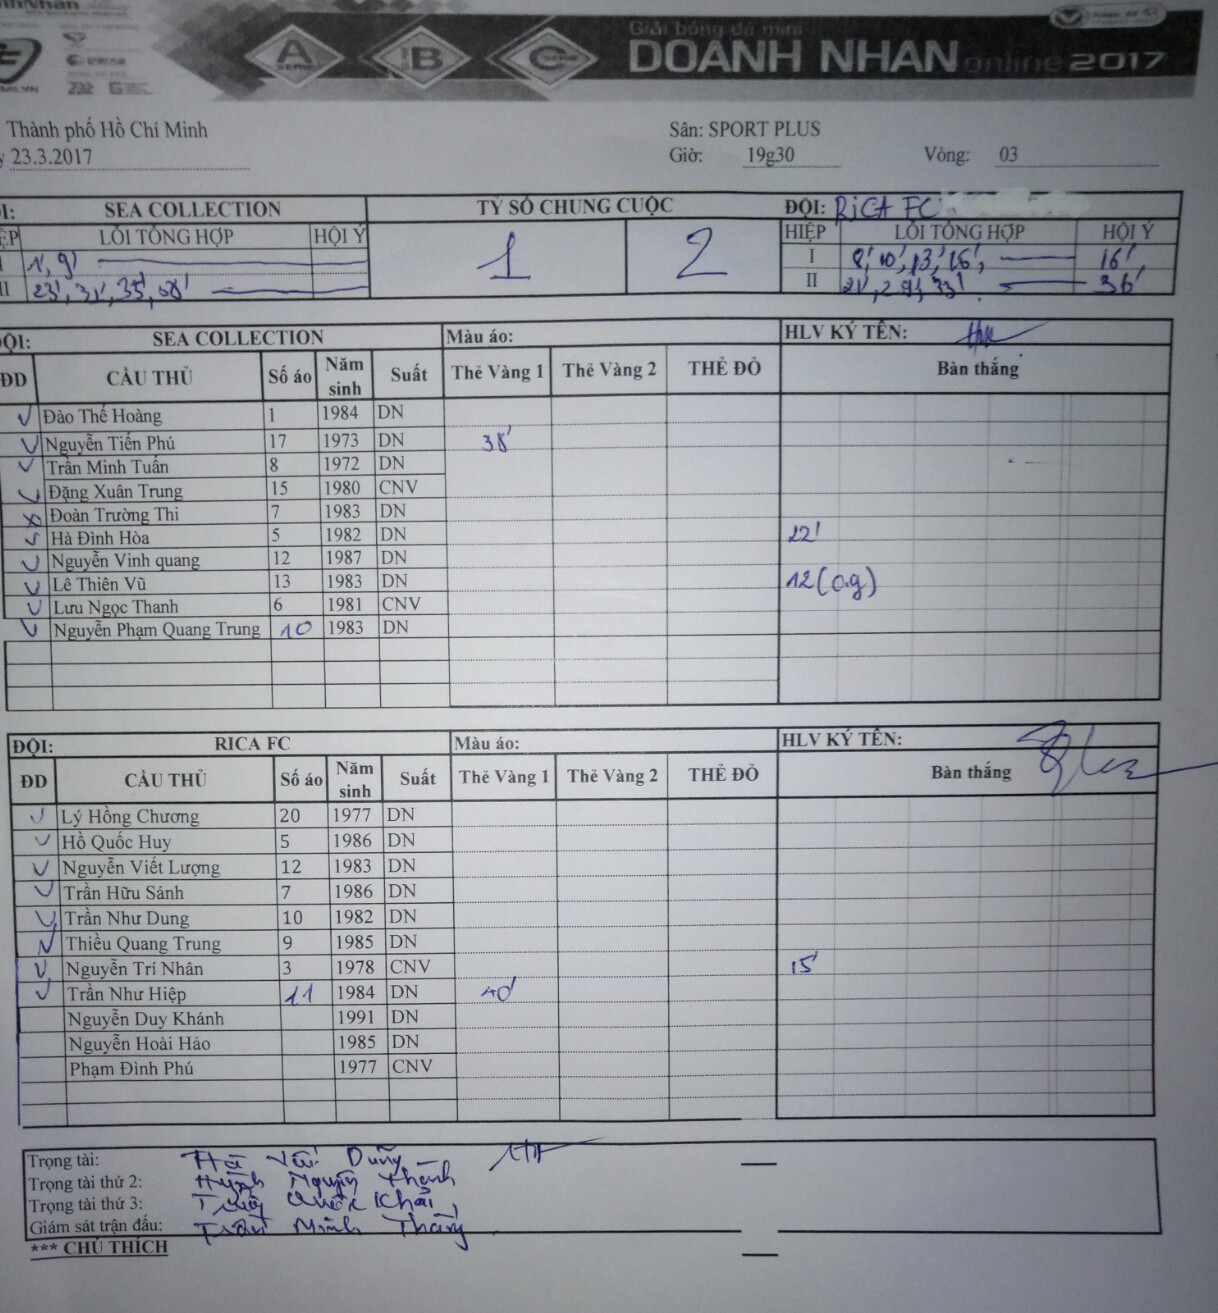 Giải bóng đá mini
A B C DOANH NHAN online 2017
Thành phố Hồ Chí Minh Sân: SPORT PLUS
23.3.2017 Giờ: 19g30 Vòng: 03
SEA COLLECTION TỶ SỐ CHUNG CUỘC ĐỘI: RICA FC
LỖI TỔNG HỢP HỘI Ý 1 2 HIỆP LỖI TỔNG HỢP HỘI Ý
1', 9' I 8', 10', 13', 16', 16'
II 23', 31', 35', II 21', 29', 33'. 36'
SEA COLLECTION Màu áo: HLV KÝ TÊN:
ĐD CẦU THỦ Số áo Năm sinh Suất Thẻ Vàng 1 Thẻ Vàng 2 THẺ ĐỎ Bàn thắng
Đào Thế Hoàng 1 1984 DN
Nguyễn Tiến Phú 17 1973 DN 38'
Trần Minh Tuấn 8 1972 DN
Đặng Xuân Trung 15 1980 CNV
Đoàn Trường Thi 7 1983 DN
Hà Đình Hòa 5 1982 DN 22'
Nguyễn Vinh quang 12 1987 DN
Lê Thiên Vũ 13 1983 DN 12 (o.g)
Lưu Ngọc Thanh 6 1981 CNV
Nguyễn Phạm Quang Trung 10 1983 DN
ĐỘI: RICA FC Màu áo: HLV KÝ TÊN:
ĐD CẦU THỦ Số áo Năm sinh Suất Thẻ Vàng 1 Thẻ Vàng 2 THẺ ĐỎ Bàn thắng
Lý Hồng Chương 20 1977 DN
Hồ Quốc Huy 5 1986 DN
Nguyễn Viết Lượng 12 1983 DN
Trần Hữu Sánh 7 1986 DN
Trần Như Dung 10 1982 DN
Thiều Quang Trung 9 1985 DN
Nguyễn Trí Nhân 3 1978 CNV 15'
Trần Như Hiệp 11 1984 DN 40'
Nguyễn Duy Khánh 1991 DN
Nguyễn Hoài Hảo 1985 DN
Phạm Đình Phú 1977 CNV
Trọng tài: Dũng
Trọng tài thứ 2: Huỳnh Nguyễn Thành
Trọng tài thứ 3: Quốc Khải
Giám sát trận đấu: Trần Minh Thắng
*** CHÚ THÍCH